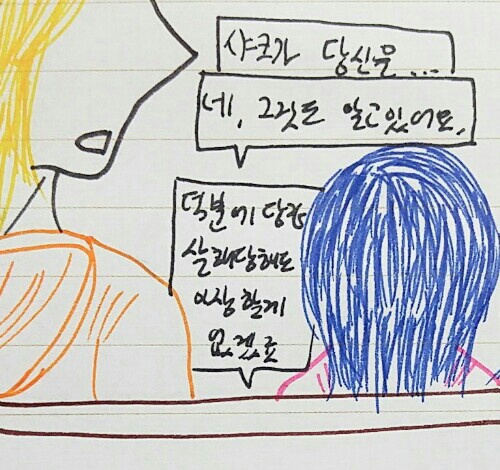 샤크가 당신을...
네, 그것도 알고있어요.
덕분에 당장
살해당해도
이상할게
없겠죠